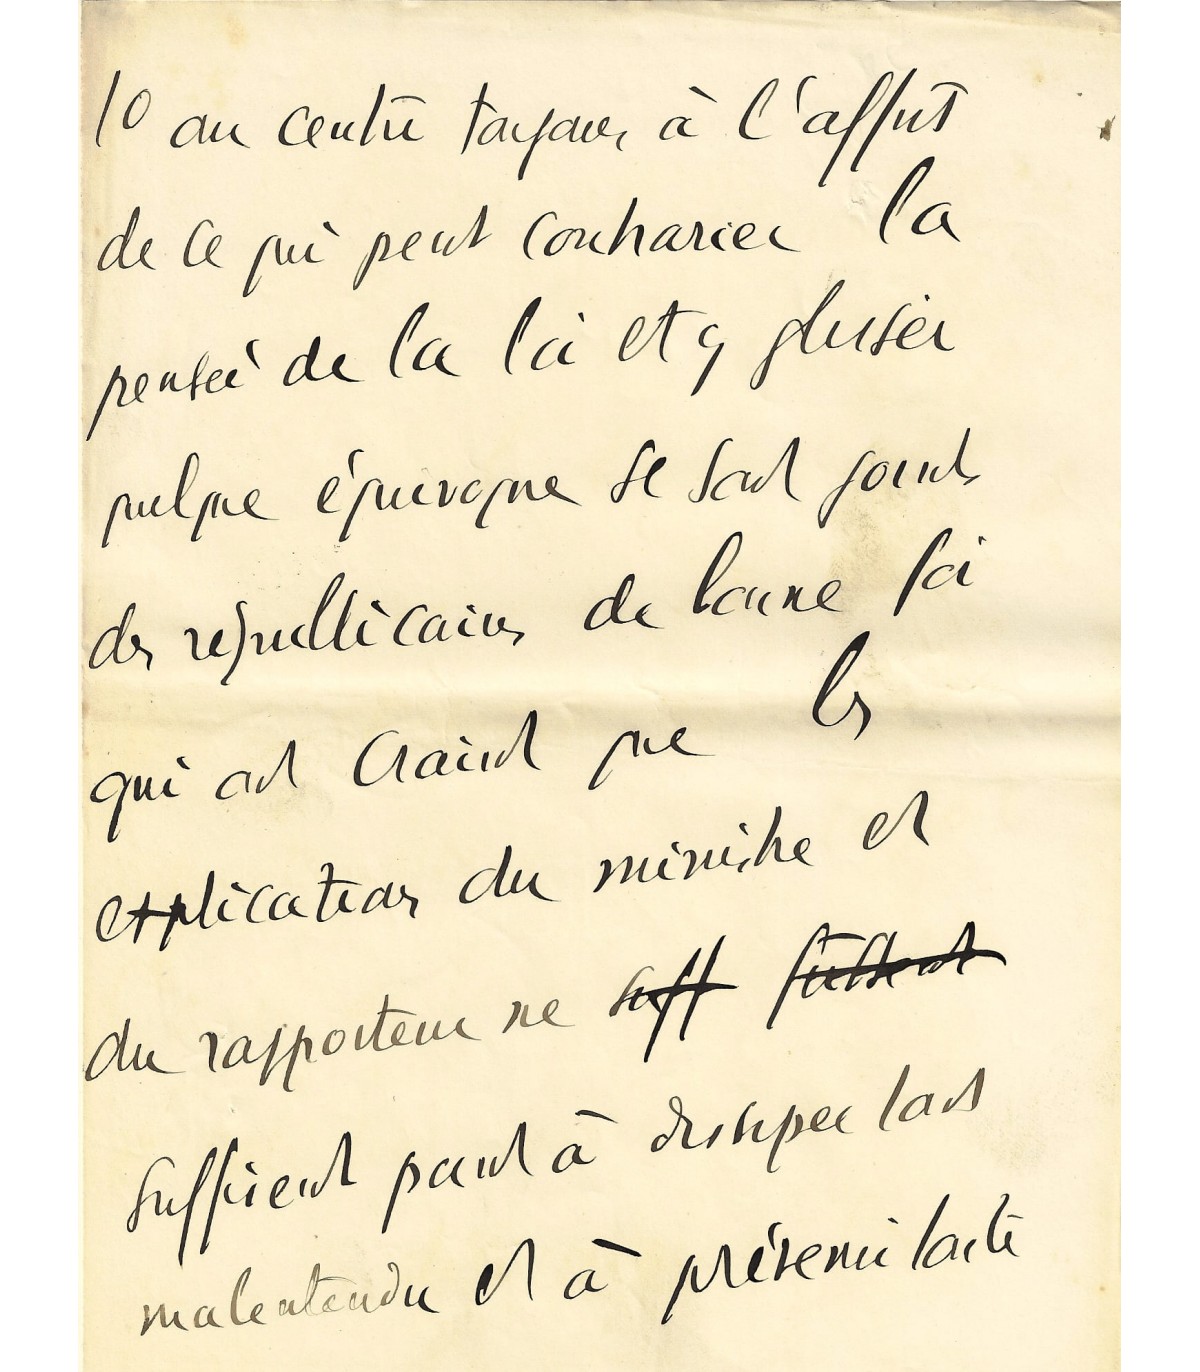 10 au centre toujours à l'affut
de ce qui peut contrarier la
pensée de la loi et y glisser
quelque équivoque se sont joints
des républicains de bonne foi
qui ont craint que les
explications du ministre et
du rapporteur ne suff fussent
suffisent point à dissiper tout
malentendu et à prévenir toute